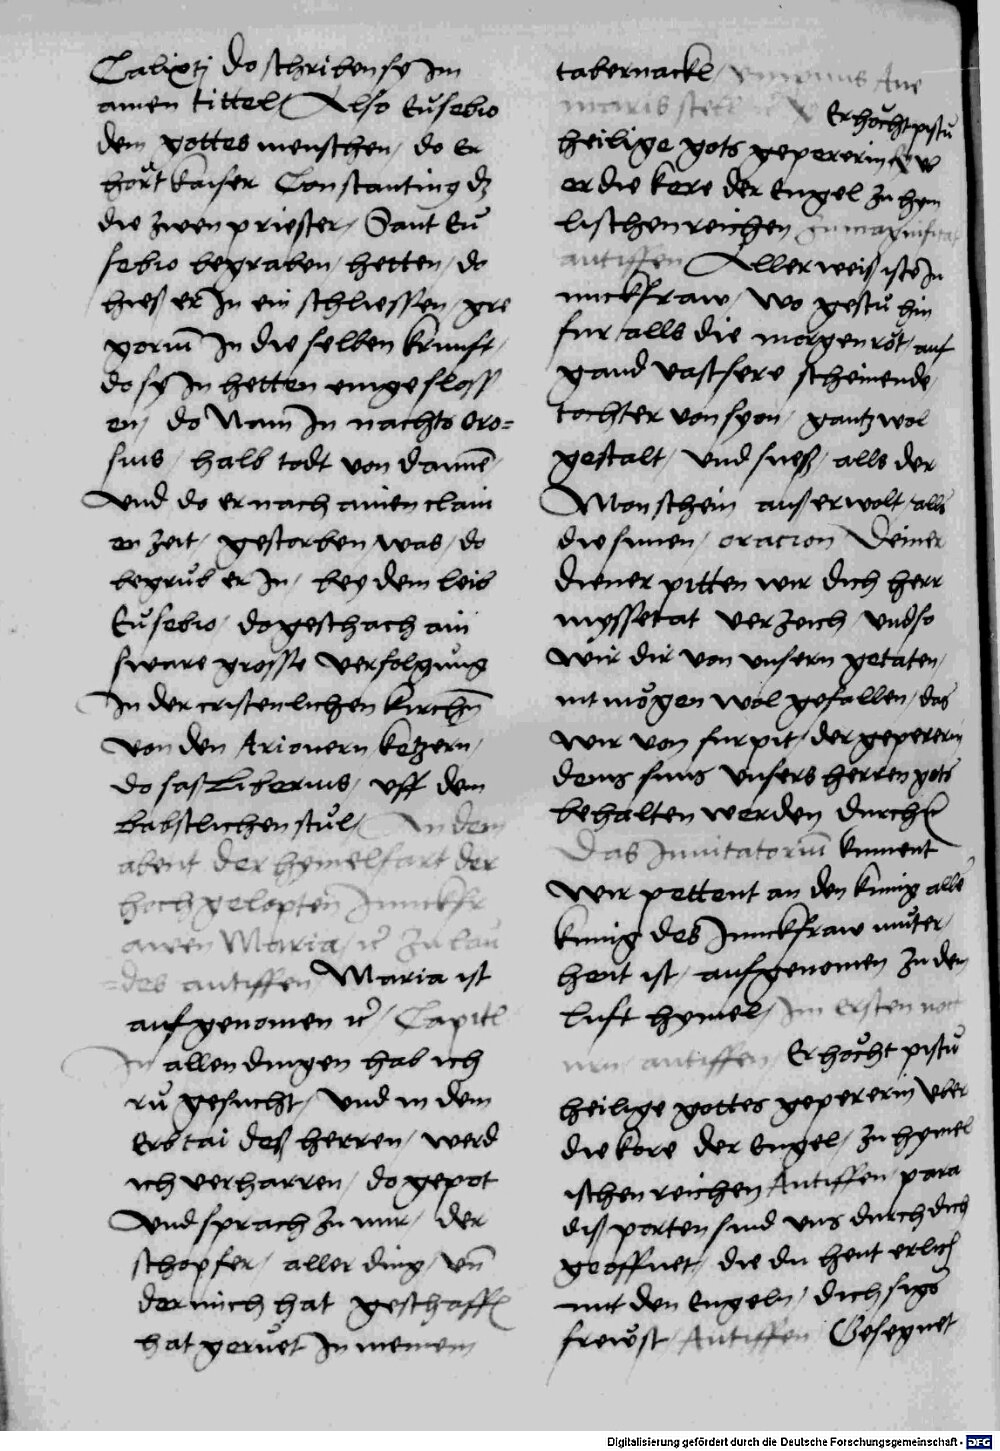 Calixtj do schriben sy Im
ainen tittel / Also Eůsebio
dem gottes menschen / do Er
hort kaiser Constanting dz
die zwen priester / Sant Eů
sebio begraben / hetten / do
hies er In ein schliessen / gre
goriū In die selben krunft /
do sy In hetten eingesloss
en / do Nam In nachts oro=
sius / halb todt von dannē /
Vnd do er nach ainen clain
en zeit / gestorben / was / do
begrůb er In / bey dem leib
Eůsebio / do geschach ain
sware grosse verfolgůng
In der cristenlichen kirchn̄
von den Arionern ketzern /
do sas Liberius / vff dem
babstlichen stůl / An dem
abent der hymelfart der
hochgelopten Junckfr
awen Maria / ꝛc zu lau
=des antiffen Maria ist
aufgenomen ꝛc / Capitl
In allen dingen hab ich
rů gesucht / Vnd in dem
Erbtai des herren / werd
ich verharren / do gepot
Vnd sprach zu mir / der
schopfer / aller ding / vn̄
der mich hat geschaff
hat gerůet In meinem
tabernackl / Ave
maris stell Erhöcht pistu
heilige gots gepererin
er die kore der Engel zu hym
lischen reichen In magnificat
antiffen Aller weisiste In
nnckfraw / Wo gestu hin
fur / alls die morgenröt / auf
gand vast sere scheinende /
tochter von syon / gantz wol
gestalt / Vnd sues / alls der
Mon schein / auserwolt / alls
die sunen / oracion Deiner
diener pitten wir dich herr
myssetat verzeich / Vnd so
wir dir von vnsern getaten /
nit mögen wol gefallen / das
wir von furpit / der gepererin
deins suns vnsers herren gots
behalten werden durch
Das Jnuitatoriū kument
wir pettent an den kunig alle
kunig des Junckfraw muter /
heut ist / aufgenomen zu dem
luft hymel / Im ersten noct
urn / antiffen / Erhöcht pistu
heilige gottes gepererin vber
die kore der Engel / zu hymel
ischen reichen Antiffen / para
dis porten sind vns durch dich
geoffnet / die du heut erlich
mit den Engeln / dich sigs
freẅst / Antiffen Gesegnet